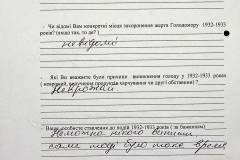 - Чи відомі Вам конкретні місця захоронення жертв Голодомору 1932-1933
років?(якщо так, то де? )
невідомі
- Які Ви вважаєте були причини виникнення голоду у 1932-1933 роках
( неврожай, вилучення продуктів харчування чи другої обставини? )
Неврожаї
- Ваше особисте ставлення до подій 1932-1933 років ( за бажанням)
Неможна нічого
саме тоді було таке время